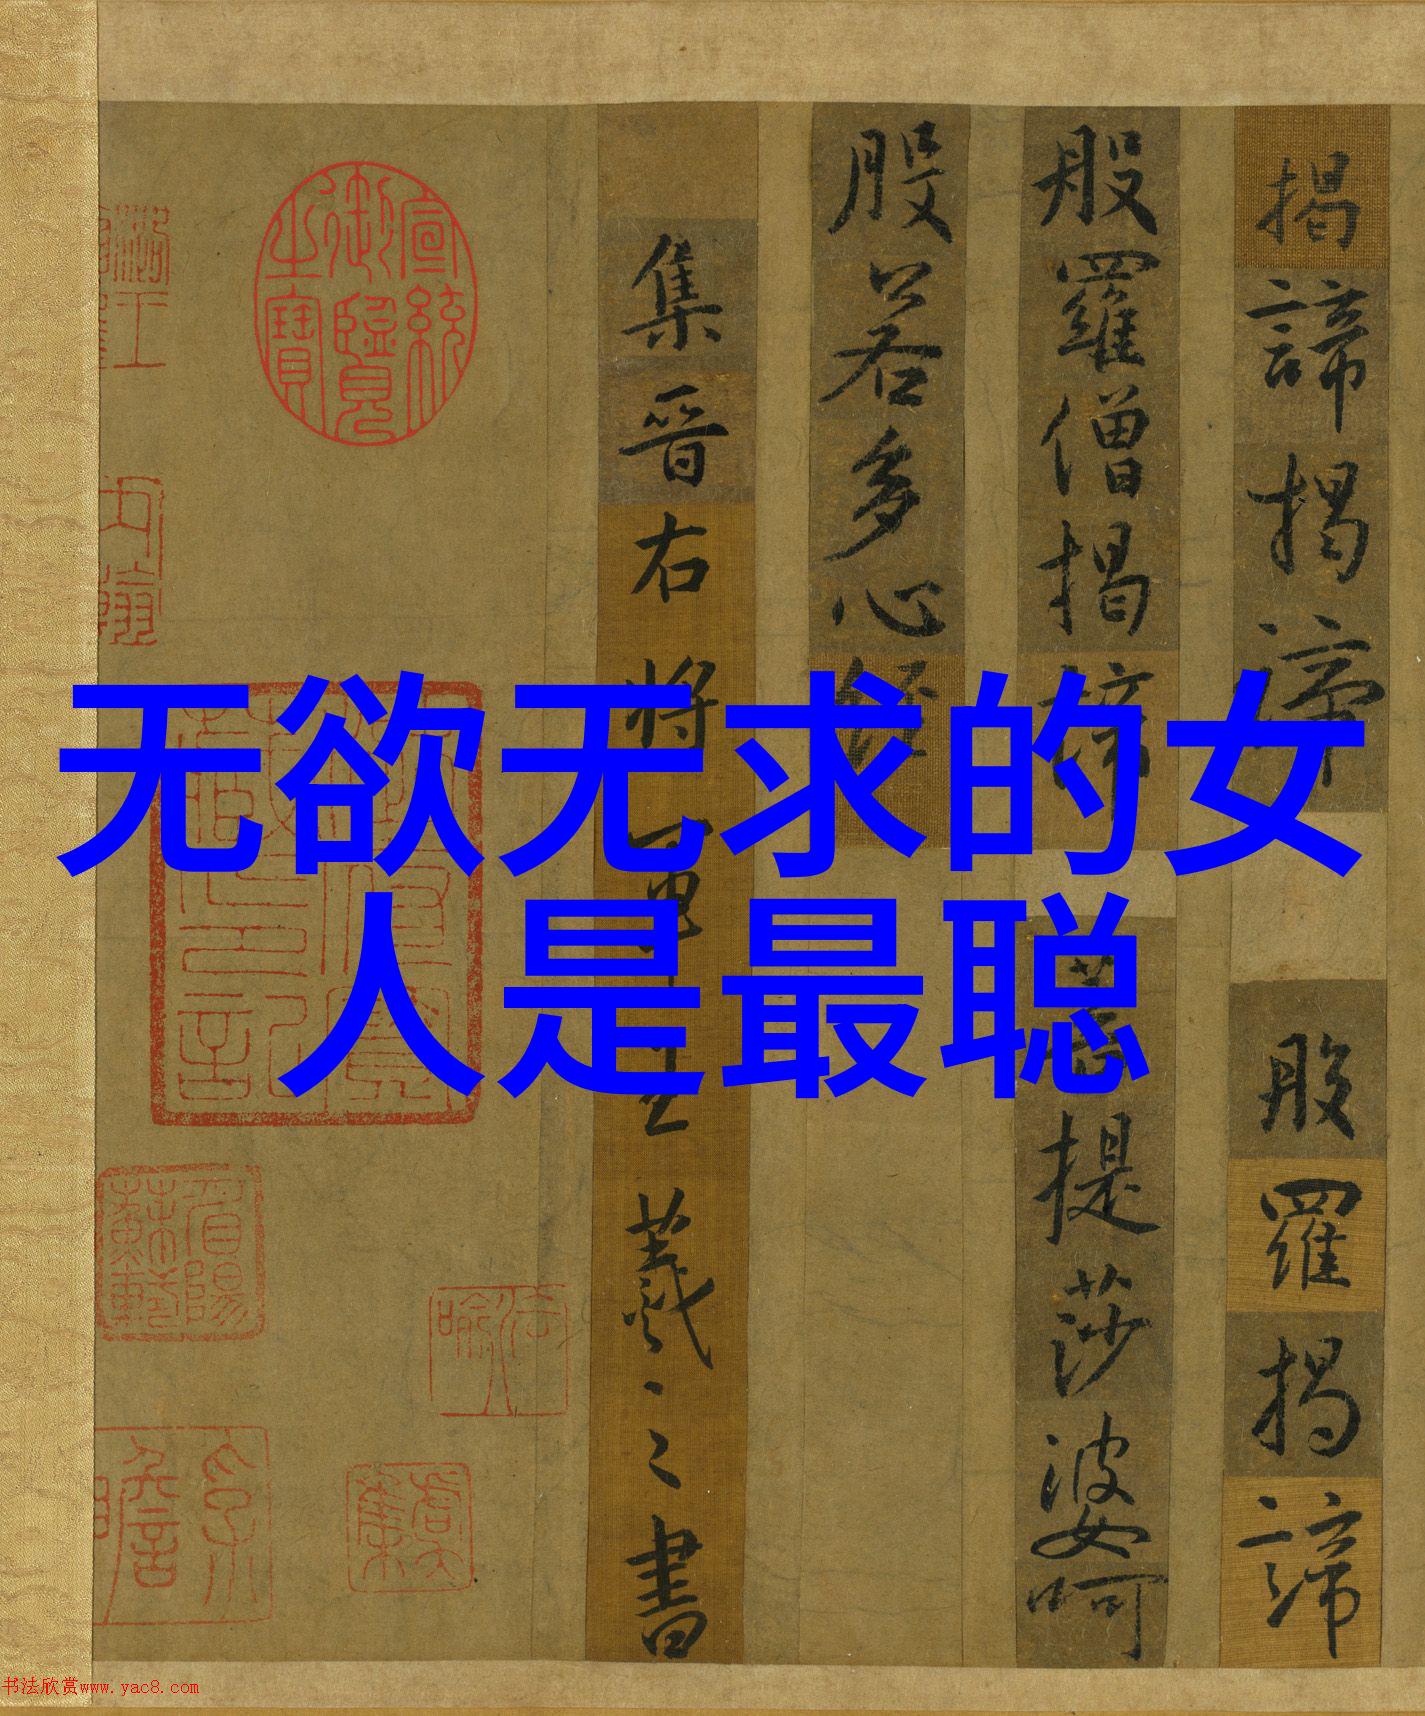 无欲无求的女
人是最聪
揭諦揭諦 般羅揭諦
般羅僧揭諦 菩提莎婆呵
般若多心經
集晉右將軍王羲之書
宣統御覽之寶
书法欣赏www.yac8.com